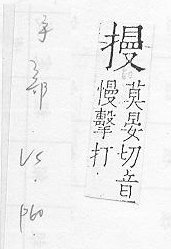 摱
莫晏切音
慢擊打
手部.V5.p60.